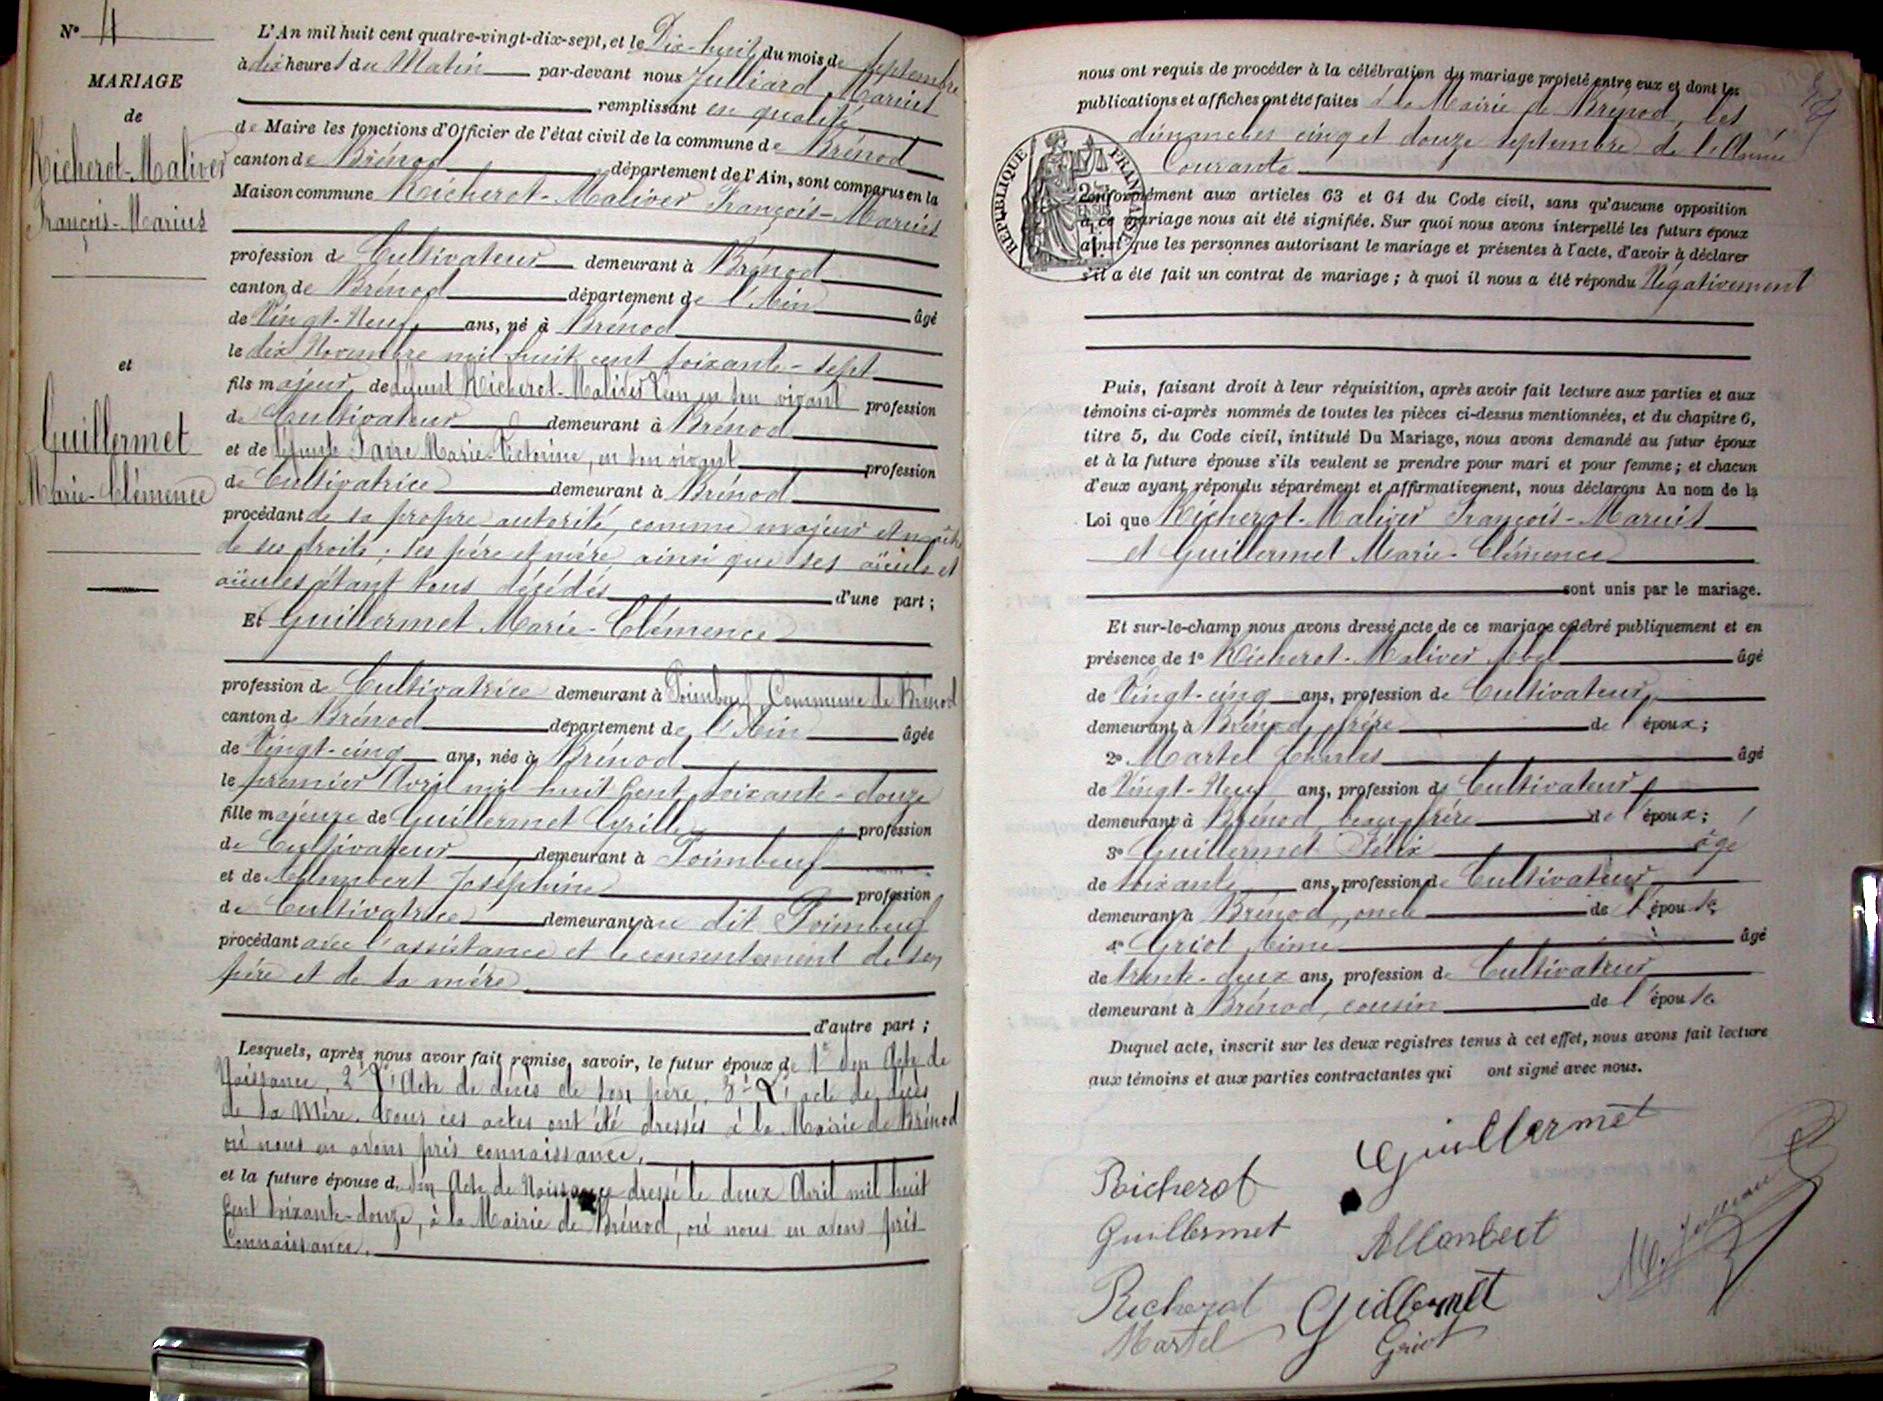 N° 4
MARIAGE
de
Richerot-Maliver
François-Marius
et
Guillermet
Marie-Clémence
L'An mil huit cent quatre-vingt-dix-sept, et le Dix-huit du mois de Septembre
à dix heures du Matin par-devant nous Julliard Marius
remplissant en qualité
de Maire les fonctions d'Officier de l'état civil de la commune de Brénod
canton de Brénod département de l'Ain, sont comparus en la
Maison commune Richerot-Maliver François-Marius
profession de Cultivateur demeurant à Brénod
canton de Brénod département de l'Ain âgé
de Vingt-Neuf ans, né à Brénod
le dix Novembre mil huit cent soixante-sept
fils majeur de défunt Richerot-Maliver en son vivant profession
de Cultivateur demeurant à Brénod
et de défunte Marie-Victorine, en son vivant profession
de Cultivatrice demeurant à Brénod
procédant de sa propre autorité, comme majeur et maître
de ses droits ; ses père et mère ainsi que ses aïeuls et
aïeules étant tous décédés d'une part ;
Et Guillermet Marie-Clémence
profession de Cultivatrice demeurant à Poimbœuf, Commune de Brénod
canton de Brénod département de l'Ain âgée
de Vingt-cinq ans, née à Brénod
le premier Avril mil huit Cent soixante-douze
fille majeure de Guillermet Cyrille profession
de Cultivateur demeurant à Poimbeuf
et de Allombert Joséphine profession
de Cultivatrice demeurant au dit Poimbeuf
procédant avec l'assistance et le consentement de son
père et de sa mère
d'autre part ;
Lesquels, après nous avoir fait remise, savoir, le futur époux de 1° son Acte de
Naissance, 2° l'Acte de décès de son père, 3° l'acte de décès
de sa Mère. Tous ces actes ont été dressés à la Mairie de Brénod
où nous en avons pris connaissance.
et la future épouse de son Acte de Naissance dressé le deux Avril mil huit
Cent soixante-douze, à la Mairie de Brénod, où nous en avons pris
Connaissance.
nous ont requis de procéder à la célébration du mariage projeté entre eux et dont les
publications et affiches ont été faites à la Mairie de Brénod, les
dimanches cinq et douze septembre de l'Année
Courante
RÉPUBLIQUE FRANÇAISE
conformément aux articles 63 et 64 du Code civil, sans qu'aucune opposition
à ce mariage nous ait été signifiée. Sur quoi nous avons interpellé les futurs époux
ainsi que les personnes autorisant le mariage et présentes à l'acte, d'avoir à déclarer
s'il a été fait un contrat de mariage ; à quoi il nous a été répondu Négativement
Puis, faisant droit à leur réquisition, après avoir fait lecture aux parties et aux
témoins ci-après nommés de toutes les pièces ci-dessus mentionnées, et du chapitre 6,
titre 5, du Code civil, intitulé Du Mariage, nous avons demandé au futur époux
et à la future épouse s'ils veulent se prendre pour mari et pour femme ; et chacun
d'eux ayant répondu séparément et affirmativement, nous déclarons Au nom de la
Loi que Richerot-Maliver François-Marius
et Guillermet Marie-Clémence
sont unis par le mariage.
Et sur-le-champ nous avons dressé acte de ce mariage célébré publiquement et en
présence de 1° Richerot-Maliver Abel âgé
de Vingt-cinq ans, profession de Cultivateur
demeurant à Brénod, frère de l'époux ;
2° Martel Charles âgé
de Vingt-Neuf ans, profession de Cultivateur
demeurant à Brénod, beau-frère de l'époux ;
3° Guillermet Félix âgé
de soixante ans, profession de Cultivateur
demeurant à Brénod, oncle de l'épouse
4° Griot Aimé âgé
de trente-deux ans, profession de Cultivateur
demeurant à Brénod, cousin de l'épouse
Duquel acte, inscrit sur les deux registres tenus à cet effet, nous avons fait lecture
aux témoins et aux parties contractantes qui ont signé avec nous.
Guillermet
Richerot
Guillermet
Allombert
M. Julliard
Richerot
Guillermet
Martel
Griot